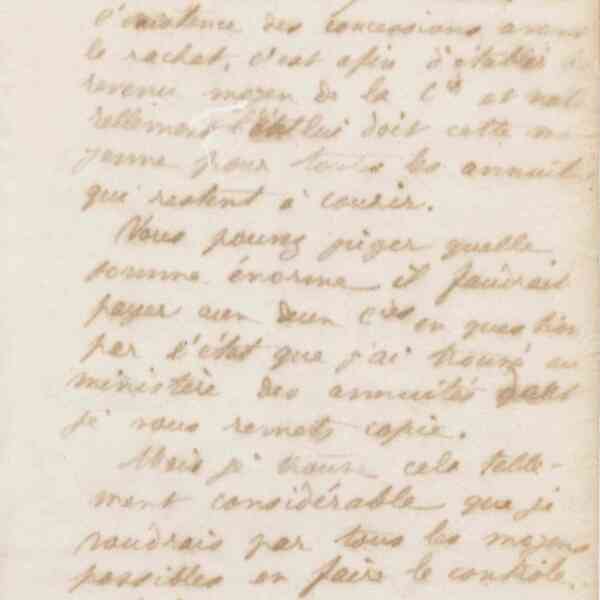 l'existence des concessions avant
le rachat, c'est afin d'établir le
revenu moyen de la Cie et natu
rellement l'état lui doit cette mo-
yenne pour toutes les annuités
qui restent à courir.
Vous pouvez juger quelle
somme énorme il faudrait
payer aux deux Cies en question
par l'état que j'ai trouvé au
ministère des annuités dont
je vous remets copie.
Mais je trouve cela telle-
ment considérable que je
voudrais par tous les moyens
possibles en faire le contrôle.